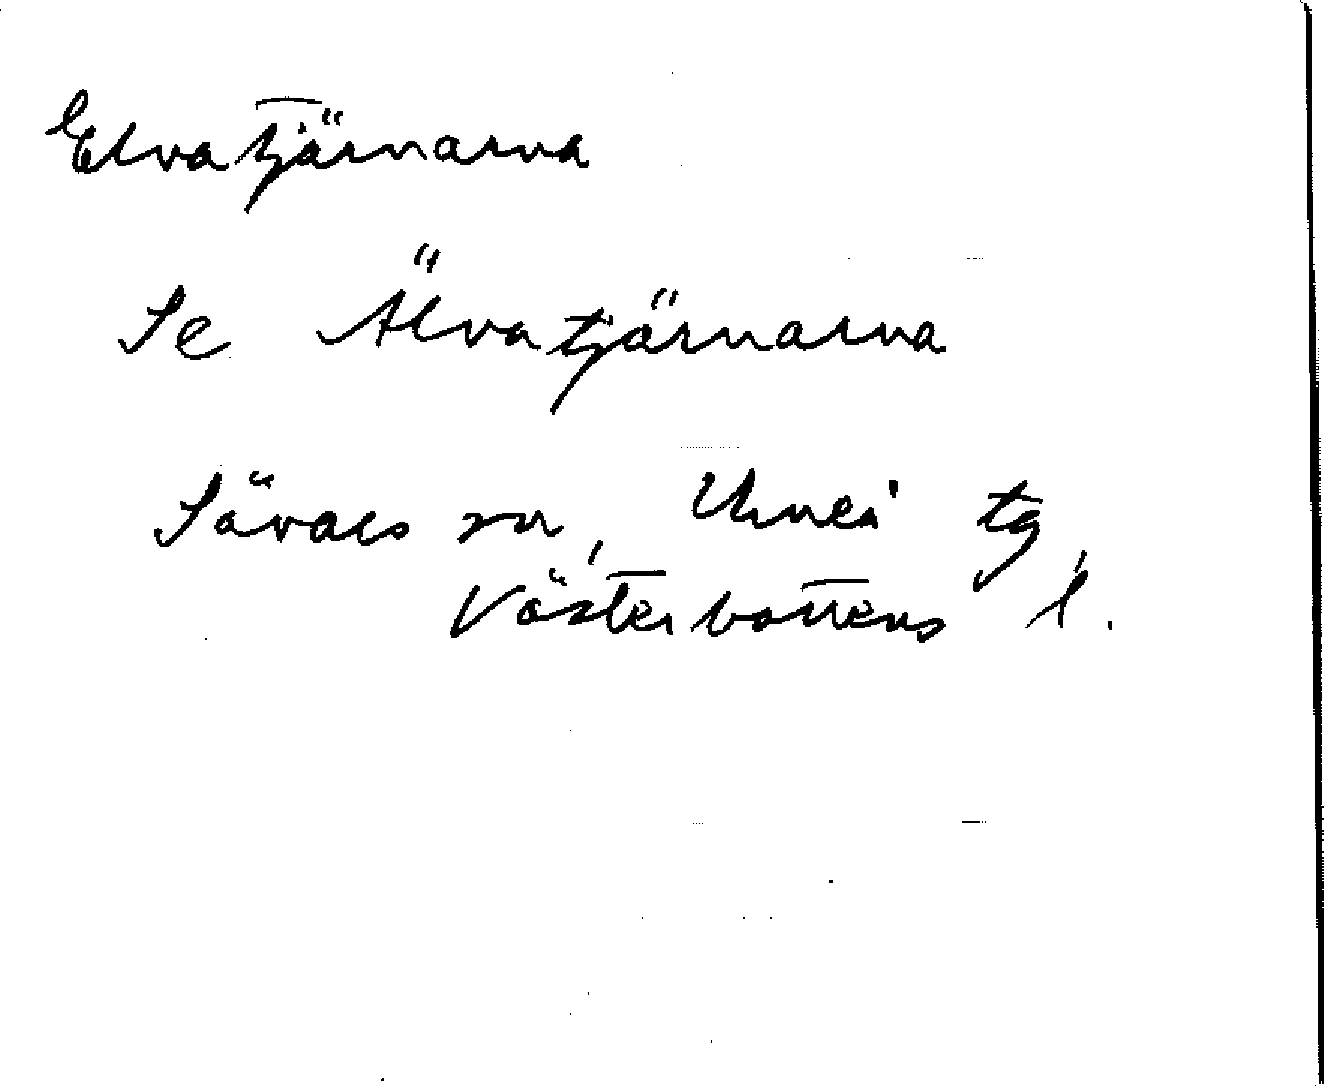 Elvatjärnarna
Se Älvatjärnarna
Sävars sn, Umeå tg,
Västerbottens l.